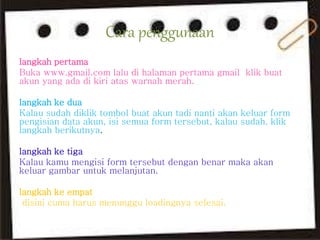 Cara penggunaan
langkah pertama
Buka www.gmail.com lalu di halaman pertama gmail klik buat
akun yang ada di kiri atas warnah merah.
langkah ke dua
Kalau sudah diklik tombol buat akun tadi nanti akan keluar form
pengisian data akun, isi semua form tersebut, kalau sudah, klik
langkah berikutnya.
langkah ke tiga
Kalau kamu mengisi form tersebut dengan benar maka akan
keluar gambar untuk melanjutan.
langkah ke empat
disini cuma harus menunggu loadingnya selesai.